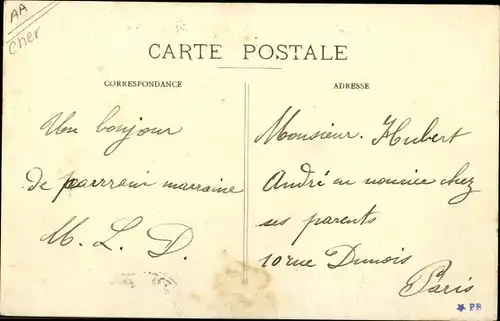 AA
Cher
CARTE POSTALE
CORRESPONDANCE
Un bonjour
de parrrain marraine
M. L. D.
ADRESSE
Monsieur Hubert
André en nourrice chez
ses parents
10 rue Dunois
Paris
PB